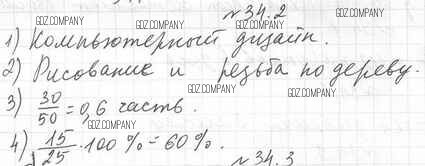 GDZ.COMPANY
№34.2
GDZ.COMPANY
GDZ.COMPANY
1) Компьютерный дизайн.
GDZ.COMPANY
2) Рисование и резьба по дереву.
GDZ.COMPANY
GDZ.COMPANY
3) 30/50 = 0,6 часть.
GDZ.COMPANY
4) 15/25 · 100 % = 60 %.
№34.3